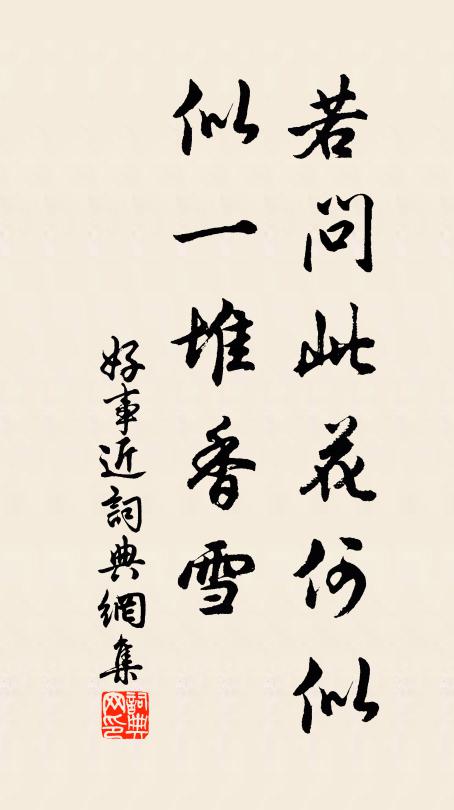 若問此花何似
似一堆香雪
好事近詞典網集
詞典
网印